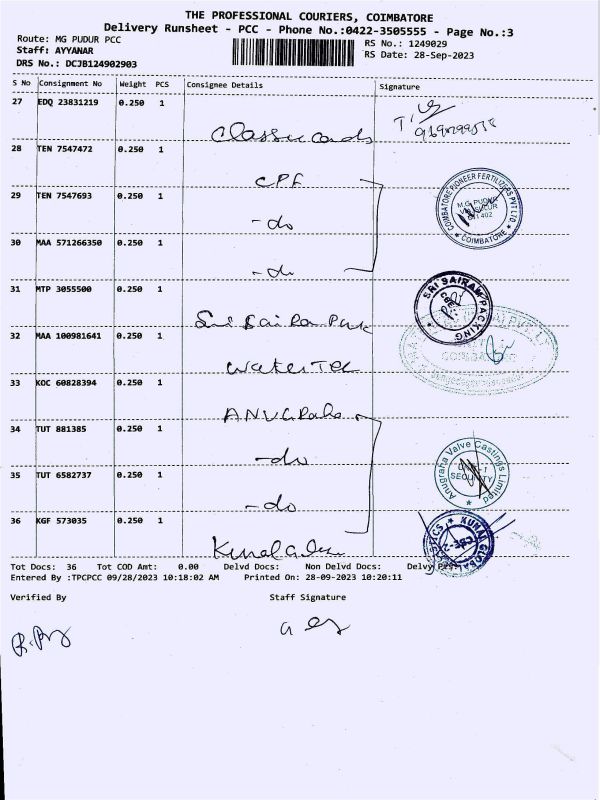 THE PROFESSIONAL COURIERS, COIMBATORE
Delivery Runsheet - PCC - Phone No.:0422-3505555 - Page No.:3
Route: MG PUDUR PCC
RS No.: 1249029
Staff: AYYANAR
RS Date: 28-Sep-2023
DRS No.: DCJB124902903
S No Consignment No Weight PCS Consignee Details Signature
27 EDQ 23831219 0.250 1
Classic cards
28 TEN 7547472 0.250 1
CPF
29 TEN 7547693 0.250 1
COIMBATORE PIONEER FERTILIZERS PVT LTD
M.G. PUDUR
641 402
COIMBATORE
-do
30 MAA 571266350 0.250 1
-do
31 MTP 3055500 0.250 1
SRI SAIRAM PACKING
CBE
Sri Sai Ram Pack
32 MAA 100981641 0.250 1
COIMBATORE
WaterTec
33 KOC 60828394 0.250 1
ANUGRaha
34 TUT 881385 0.250 1
-do
35 TUT 6582737 0.250 1
Anugraha Valve Castings Limited
UNIT-1
SECURITY
-do
36 KGF 573035 0.250 1
KUNAL GLOBAL
CBE-2
Kunal
Tot Docs: 36 Tot COD Amt: 0.00 Delvd Docs: Non Delvd Docs: Delvy
Entered By :TPCPCC 09/28/2023 10:18:02 AM Printed On: 28-09-2023 10:20:11
Verified By Staff Signature